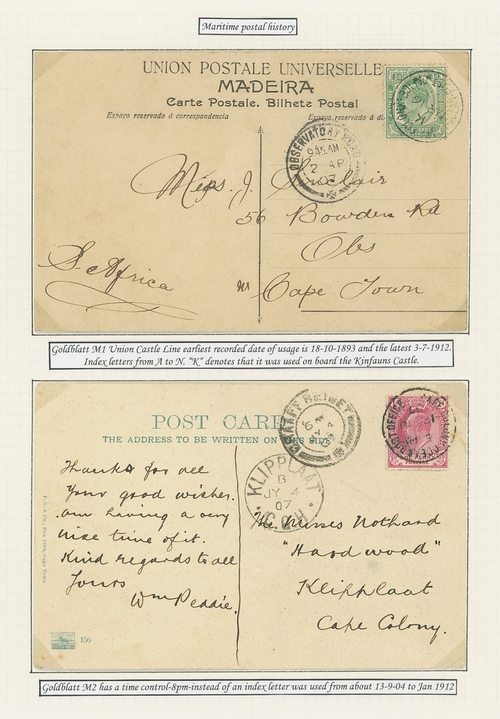 Maritime postal history
UNION POSTALE UNIVERSELLE
MADEIRA
Carte Postale. Bilhete Postal
Espaço reservado á correspondencia
Espaço reservado á
OBSERVATORY
9.45 AM
2 AP
07
Miss. J. Sinclair
56 Bowden Rd
Obs
nr Cape Town
S. Africa
Goldblatt M1 Union Castle Line earliest recorded date of usage is 18-10-1893 and the latest 3-7-1912.
Index letters from A to N. "K" denotes that it was used on board the Kinfauns Castle.
POST CARD
THE ADDRESS TO BE WRITTEN ON THIS SIDE
GRAAFF REINET
KLIPPLAAT
B
JY 4
07
C.G.H.
Thanks for all
your good wishes.
am having a very
nice time of it.
Kind regards to all
Yours
Wm Peddie.
The Misses Nothard
"Hardwood"
Klipplaat
Cape Colony.
156
Goldblatt M2 has a time control-8pm-instead of an index letter was used from about 13-9-04 to Jan 1912